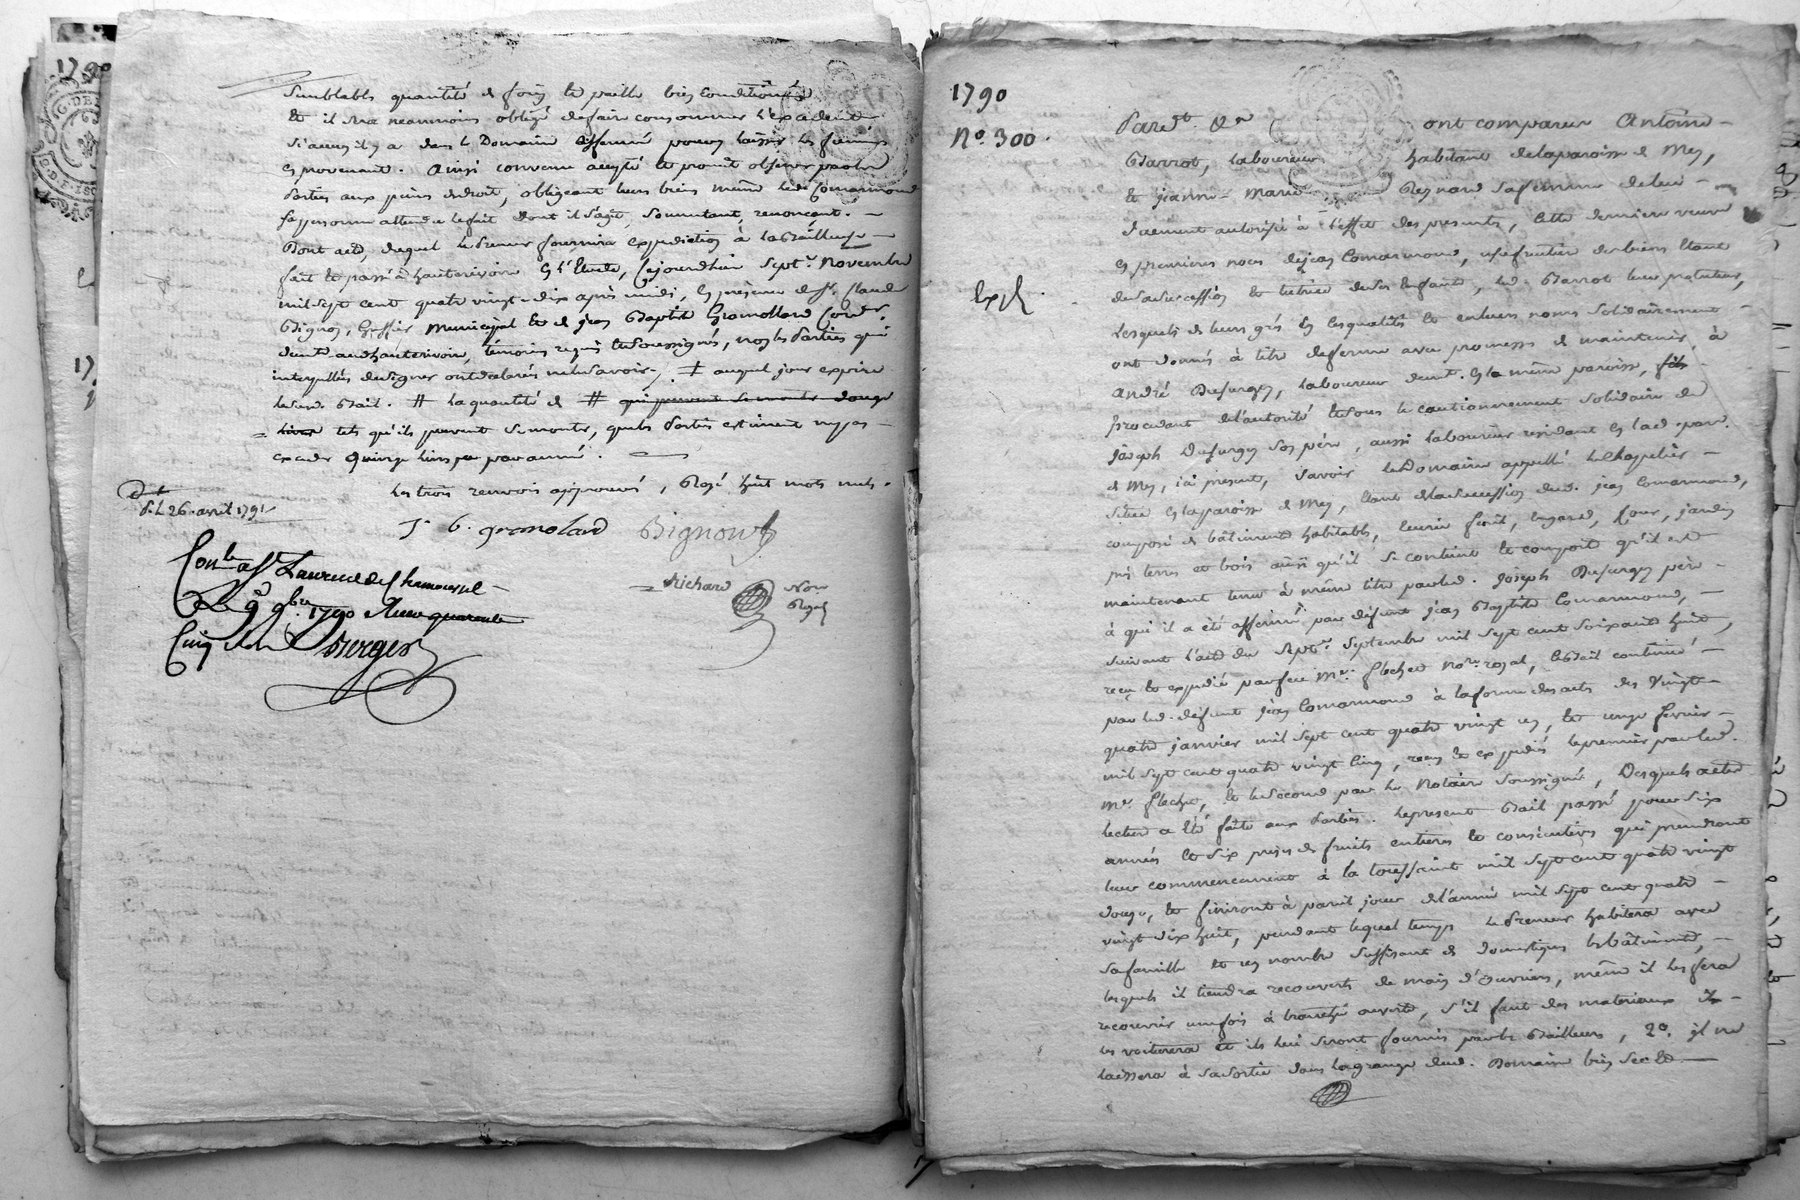 1790
semblable quantité de foin et paille bien conditionnés
et il sera neanmoins obligé de faire consommer l'excedent
s'aucun il y a dans le Domaine affermé pour y laisser les fumiers
en provenant. Ainsi convenu accepté et promit observer par les
Parties aux peines de droit, obligeant leurs biens même led. Comarmond
sa personne attendu le fait dont il s'agit, soumettant, renonçant. —
Dont acte, duquel le Preneur fournira expedition à la Bailleuse —
fait et passé à hauterivoire en l'Etude, cejourdhui sept. Novembre
mil sept cent quatre vingt-dix après midi, en présence de Sr. Claude
Bignon, Greffier municipal et de jean Baptiste Gramollard Cordr.
demt. aud. hauterivoire, témoins requis et soussignés, non les Parties qui
interpellées de signer ont declarés ne le savoir ./. ‡ auquel jour expire
led. Bail. # la quantité de # qui peuvent se monter douze
livres tels qu'ils peuvent se monter, que les Parties estiment ne pas —
exceder quinze livres par année. —
Les trois renvois approuvés, Rayé huit mots nuls.
d. L. 26. avril 1791
J. b. gramolard Bignon
Conlé a St. Laurent de Chamousset
Le 9. 9bre 1790 Reçu quarante
Cinq sols Berger
Richard Nore
Royal
1790
No. 300.
Expé.
Pardt. &a ont comparu Antoine —
Barrot, laboureur habitant de la paroisse de Mey,
et jeanne-Marie Peynard sa femme de lui —
duement autorisée à l'effet des presentes, cette derniere veuve
en premieres noces de jean Comarmond, usufruitiere des biens etant
de sa succession et tutrice de ses Enfants, led. Barrot leur protuteur,
Lesquels de leurs grés en lesqualités et en leurs noms solidairement —
ont donnés à titre de ferme avec promesse de maintenir, à
André Dufurgey, laboureur demt. en la même paroisse, fils
procedant de l'autorité et sous le cautionnement solidaire de
joseph Dufurgey son père, aussi laboureur residant en lad. parr.
de Mey, ici present, savoir le Domaine appellé le Chapelier —
situé en la paroisse de Mey, etant de la succession dud. jean Comarmond,
composé de bâtiments habitables, écurie fenil, hangard, Cour, jardin
prés terres et bois ainsi qu'il se contient et comporte qu'il est
maintenant tenu à même titre par led. joseph Dufurgey père —
à qui il a été affermé par défunt jean Baptiste Comarmond, —
suivant l'acte du sept. septembre mil sept cent soixante huit,
reçu et expedié par feu Me. flechet Nore. royal, led. Bail continué —
par led. défunt jean Comarmond à la forme des actes des vingt —
quatre janvier mil sept cent quatre vingt un, et onze fevrier —
mil sept cent quatre vingt cinq, reçus et expediés le premier par led.
Me. flechet, et le second par le Notaire soussigné, Desquels actes
lecture a été faite aux Parties. Le present Bail passé pour six
années et six prises de fruits entieres et consecutives qui prendront
leur commencement à la toussaint mil sept cent quatre vingt
douze, et finiront à pareil jour de l'année mil sept cent quatre —
vingt dix huit, pendant lequel temps le Preneur habitera avec
sa famille et un nombre suffisant de domestiques les bâtiments, —
lesquels il tiendra recouverts de main d'ouvriers, même il les fera
recouvrir une fois à tranché ouvert, s'il faut des materiaux il —
les voiturera et ils lui seront fournis par les Bailleurs, 2o. il ne
laissera à sa sortie dans la grange dud. Domaine bien sec et —